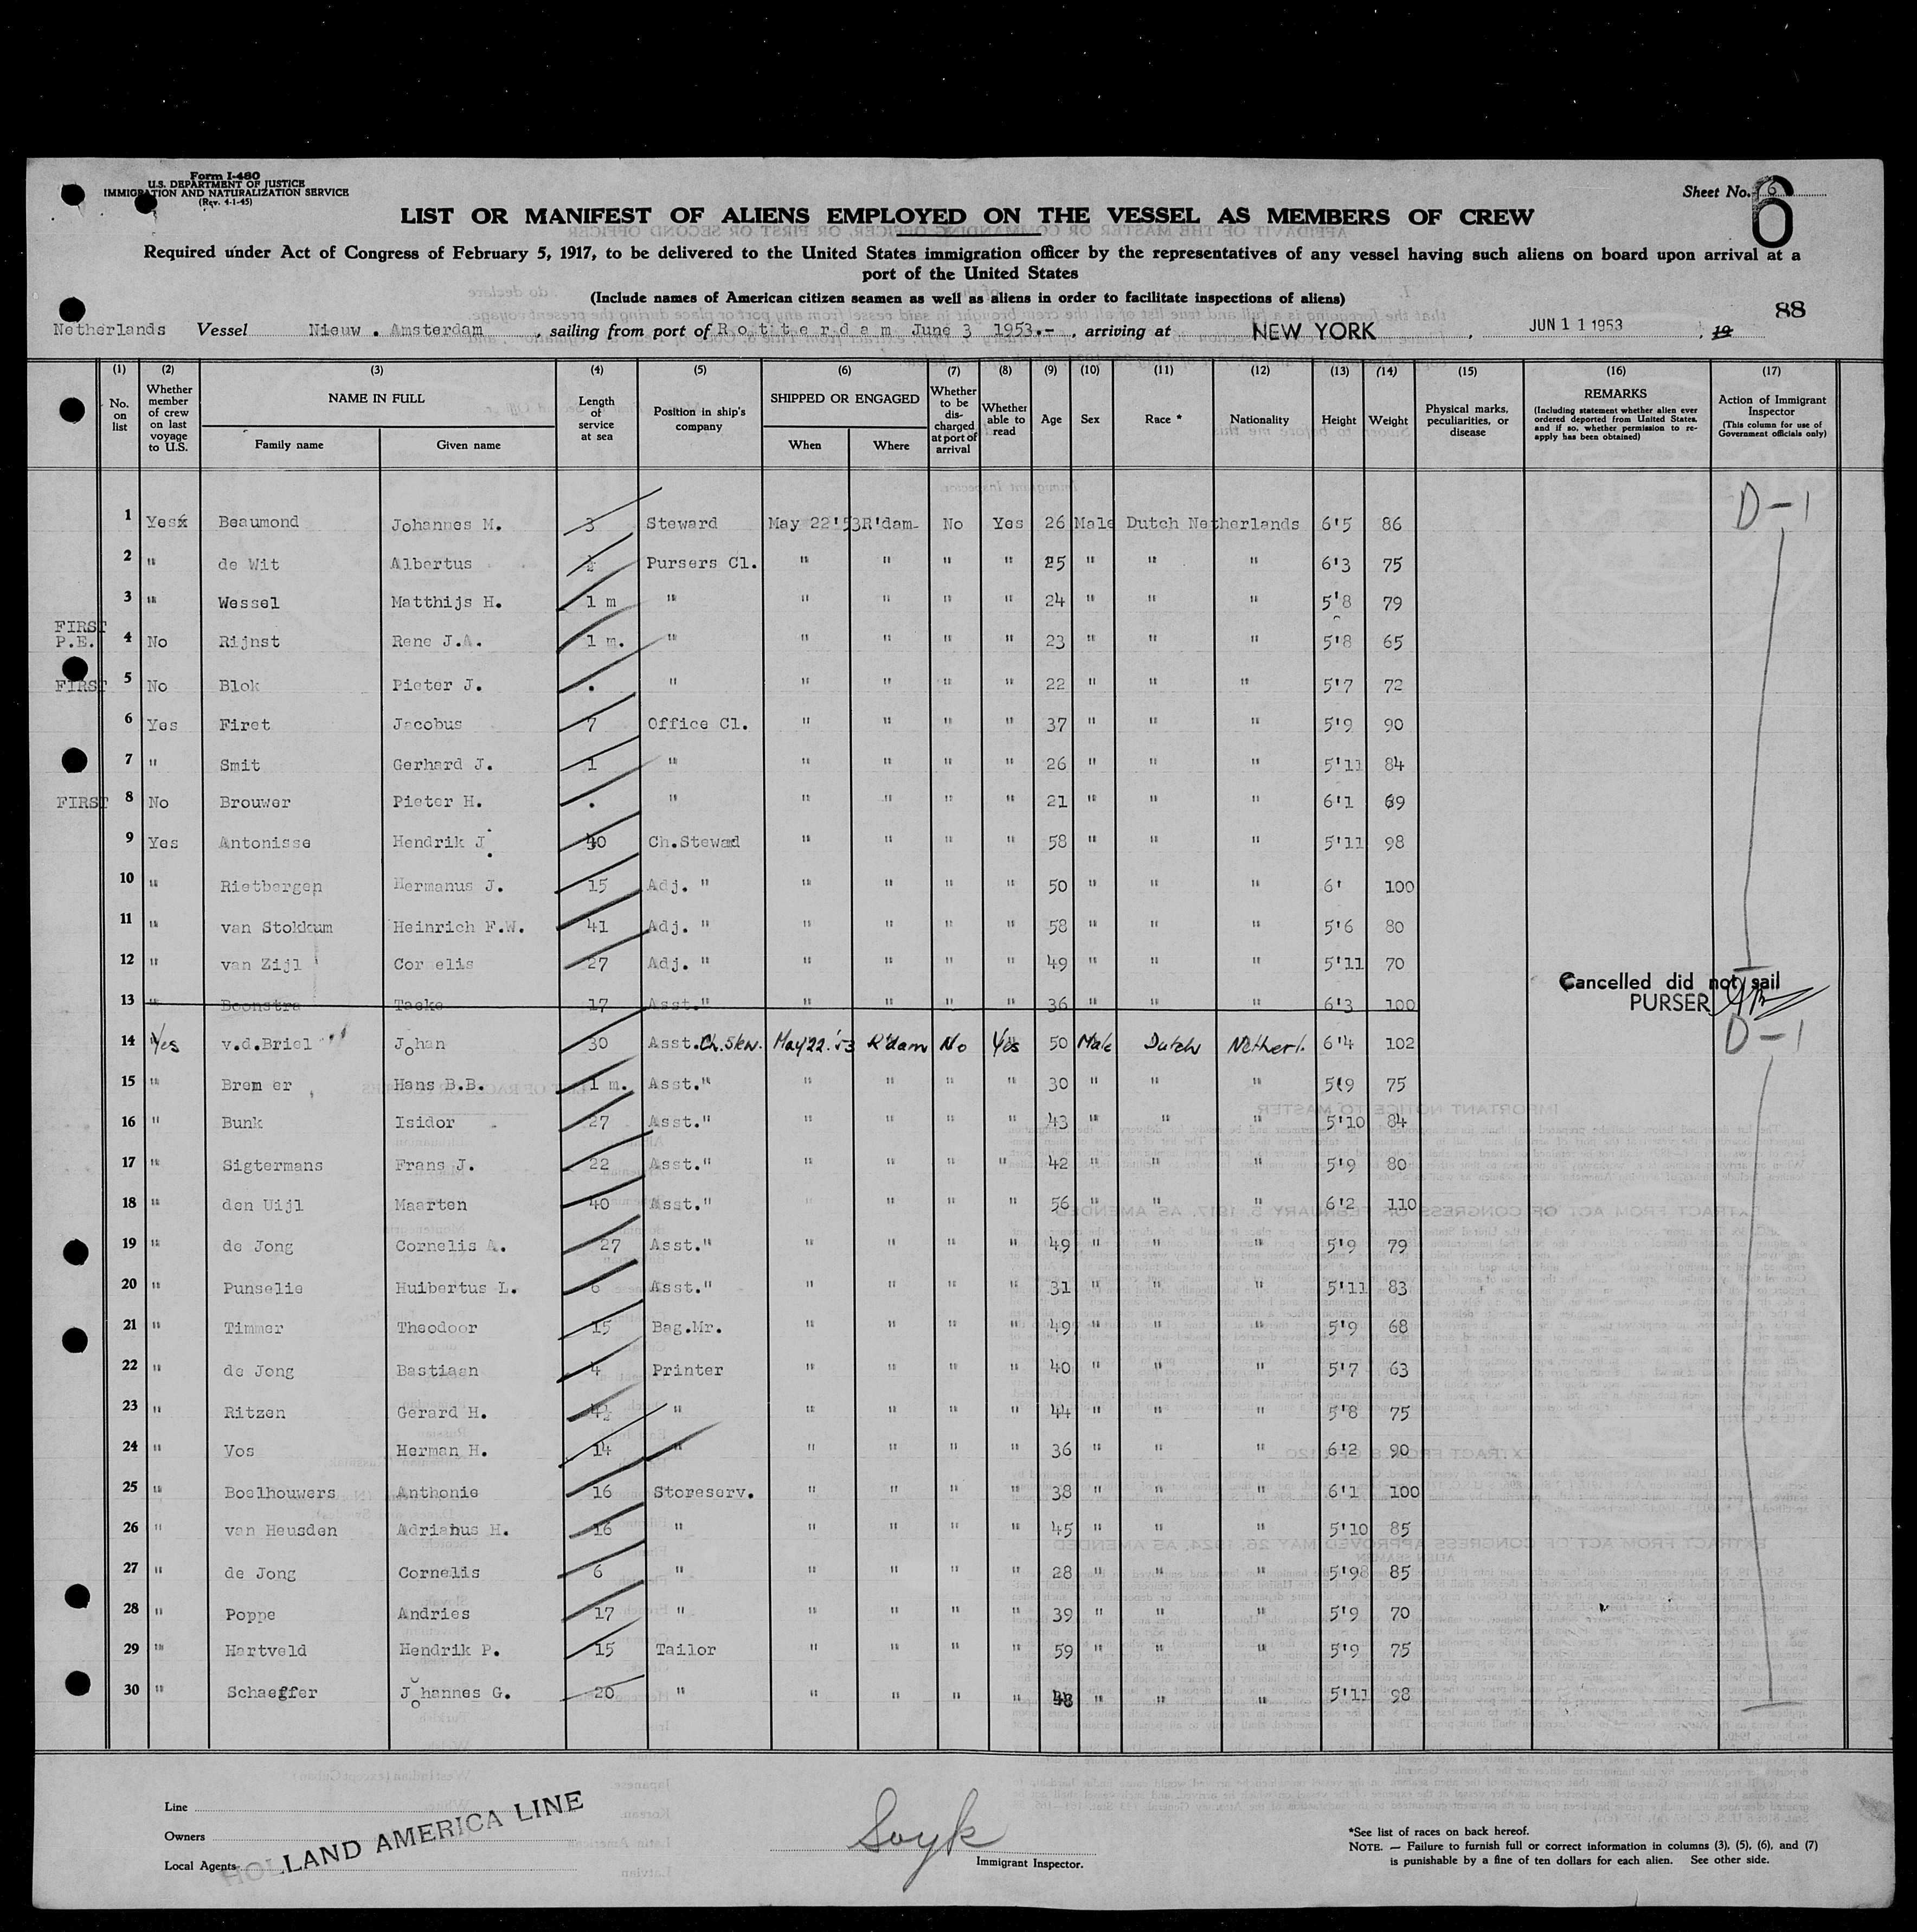 Form I-480
U.S. DEPARTMENT OF JUSTICE
IMMIGRATION AND NATURALIZATION SERVICE
(Rev. 4-1-45)
Sheet No. 6
6
LIST OR MANIFEST OF ALIENS EMPLOYED ON THE VESSEL AS MEMBERS OF CREW
Required under Act of Congress of February 5, 1917, to be delivered to the United States immigration officer by the representatives of any vessel having such aliens on board upon arrival at a
port of the United States
(Include names of American citizen seamen as well as aliens in order to facilitate inspections of aliens)
88
Netherlands Vessel Nieuw . Amsterdam , sailing from port of Rotterdam June 3 1953.- , arriving at NEW YORK , JUN 11 1953 , 19
(1) (2) (3) (4) (5) (6) (7) (8) (9) (10) (11) (12) (13) (14) (15) (16) (17)
No. on list Whether member of crew on last voyage to U.S. NAME IN FULL Family name Given name Length of service at sea Position in ship's company SHIPPED OR ENGAGED When Where Whether to be discharged at port of arrival Whether able to read Age Sex Race * Nationality Height Weight Physical marks, peculiarities, or disease REMARKS (Including statement whether alien ever ordered deported from United States, and if so, whether permission to re-apply has been obtained) Action of Immigrant Inspector (This column for use of Government officials only)
1 Yes Beaumond Johannes M. 3 Steward May 22'53 R'dam- No Yes 26 Male Dutch Netherlands 6'5 86 D-1
2 " de Wit Albertus ½ Pursers Cl. " " " " 25 " " " 6'3 75
3 " Wessel Matthijs H. 1 m " " " " " 24 " " " 5'8 79
FIRST P.E. 4 No Rijnst Rene J.A. 1 m. " " " " " 23 " " " 5'8 65
FIRST 5 No Blok Pieter J. . " " " " " 22 " " " 5'7 72
6 Yes Firet Jacobus 7 Office Cl. " " " " 37 " " " 5'9 90
7 " Smit Gerhard J. 1 " " " " " 26 " " " 5'11 84
FIRST 8 No Brouwer Pieter H. . " " " " " 21 " " " 6'1 69
9 Yes Antonisse Hendrik J. 40 Ch.Steward " " " " 58 " " " 5'11 98
10 " Rietbergen Hermanus J. 15 Adj. " " " " " 50 " " " 6' 100
11 " van Stokkum Heinrich F.W. 41 Adj. " " " " " 58 " " " 5'6 80
12 " van Zijl Cornelis 27 Adj. " " " " " 49 " " " 5'11 70
Cancelled did not sail
13 " Boonstra Taeke 17 Asst." " " " " 36 " " " 6'3 100 PURSER
14 Yes v.d.Briel Johan 30 Asst.Ch.Stew. May 22.'53 R'dam No Yes 50 Male Dutch Netherl. 6'4 102 D-1
15 " Bremer Hans B.B. 1 m. Asst." " " " " 30 " " " 5'9 75
16 " Bunk Isidor 27 Asst." " " " " 43 " " " 5'10 84
17 " Sigtermans Frans J. 22 Asst." " " " " 42 " " " 5'9 80
18 " den Uijl Maarten 40 Asst." " " " " 56 " " " 6'2 110
19 " de Jong Cornelis A. 27 Asst." " " " " 49 " " " 5'9 79
20 " Punselie Huibertus L. 6 Asst." " " " " 31 " " " 5'11 83
21 " Timmer Theodoor 15 Bag.Mr. " " " " 49 " " " 5'9 68
22 " de Jong Bastiaan 4 Printer " " " " 40 " " " 5'7 63
23 " Ritzen Gerard H. 4½ " " " " " 44 " " " 5'8 75
24 " Vos Herman H. 14 " " " " " 36 " " " 6'2 90
25 " Boelhouwers Anthonie 16 Storeserv. " " " " 38 " " " 6'1 100
26 " van Heusden Adrianus H. 16 " " " " " 45 " " " 5'10 85
27 " de Jong Cornelis 6 " " " " " 28 " " " 5'98 85
28 " Poppe Andries 17 " " " " " 39 " " " 5'9 70
29 " Hartveld Hendrik P. 15 Tailor " " " " 59 " " " 5'9 75
30 " Schaeffer Johannes G. 20 " " " " " 48 " " " 5'11 98
Line
Owners
Local Agents
HOLLAND AMERICA LINE
Immigrant Inspector.
*See list of races on back hereof.
NOTE. — Failure to furnish full or correct information in columns (3), (5), (6), and (7)
is punishable by a fine of ten dollars for each alien. See other side.